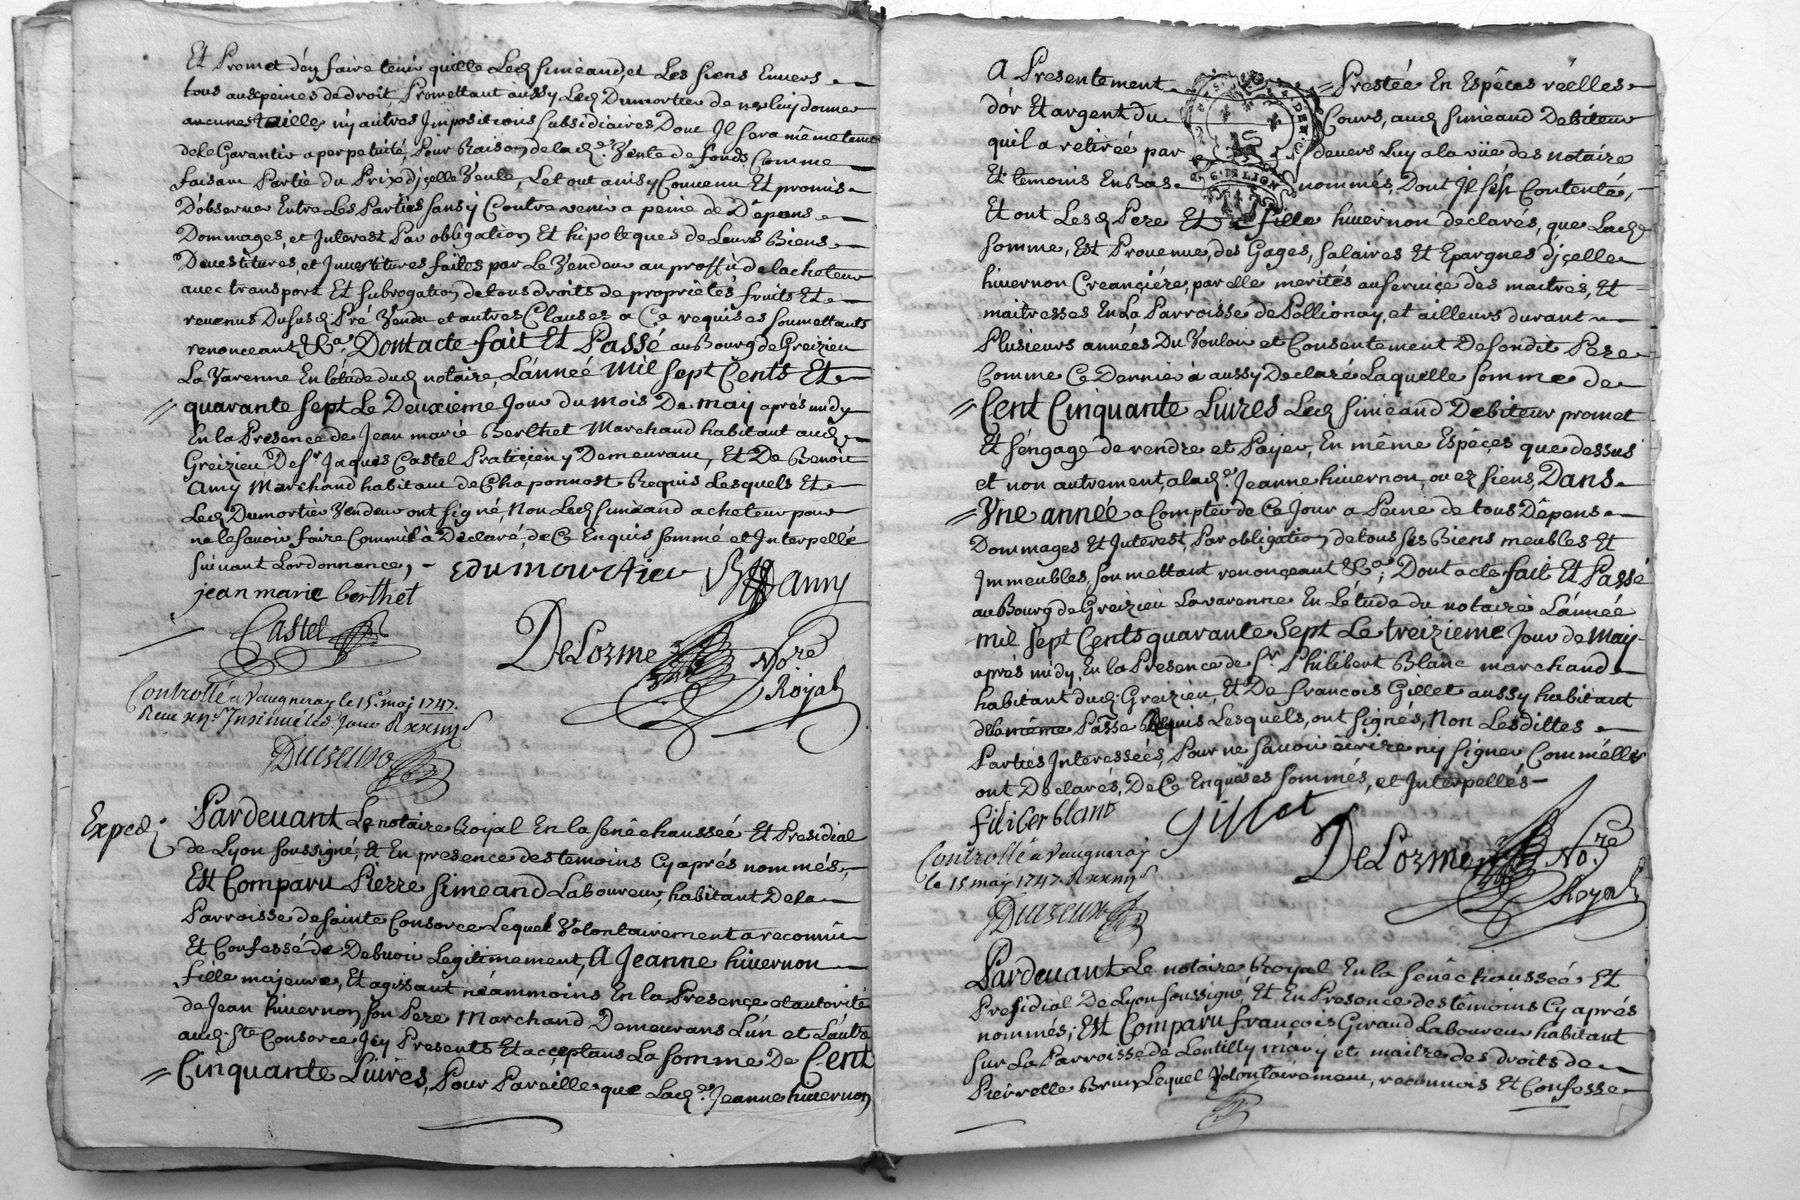 Et Promet d'en faire tenir quitte Led. Simeand, et Les Siens Envers
tous aux peines de droit Promettant aussy Led. Dumortier de ne luy donner
aucunes tailles ny autres Impositions subsidiaires Dont Il sera même tenu
de le Garantir a perpetuité, Pour Raison de lad.e Vente de fonds Comme
faisant Partie du Prix d'jcelle Vente, Le tout ainsy Convenu Et promis
D'observer Entre Les Parties sans y Contrevenir a peine de Dêpens
Dommages, et Interest Par obligation Et hipoteques de Leurs Biens
Devestitures, et Investitures faites par Le Vendeur au proffit de lacheteur
avec transport Et subrogation de tous droits de proprietes fruits Et
revenus Du susd. Pré Vendu et autres Clauses a Ce requises soumettants
renonceant &a. Dont acte fait Et Passé au Bourg de Greizieu
La Varenne En létude dud. notaire, L'année mil sept Cents Et
quarante sept Le Deuxieme Jour du mois De may aprés midy
En la Présence de Jean marie Berthet Marchand habitant aud.
Greizieu De Sr. Jaques Castel Praticien y Demeurant, Et De Benoit
Amy Marchand habitant de Chaponnost Requis Lesquels Et
Led. Dumortier Vendeur ont signé, Non Led. Simeand acheteur pour
ne le savoir faire Comme il à Déclaré, de Ce Enquis sommé et Interpellé
suivant L'ordonnance,
edumourtier
B Amy
jean marie berthet
Castel
DeLorme Nore Royal
Controllé a Vaugneray le 15e. maj 1747.
Ducreux
Exped.
Pardevant Le notaire Royal En la sênêchaussée Et Presidial
de Lyon soussigné, Et En presence des temoins Cy aprés nommés,
Est Comparu Pierre Simeand Laboureur, habitant De la
Parroisse de sainte Consorce Lequel Volontairement a reconnû
Et Confessé de Debvoir Legitimement, A Jeanne hivernon
fille majeure, Et agissant néammoins En la Presence et autorité
de Jean hivernon son Pere Marchand Demeurans L'un et L'autre
aud. Ste Consorce Icy Presents Et acceptans La somme De Cent
Cinquante Livres, Pour Pareille que Lad.e Jeanne hivernon
A Presentement Prestée En Espêces réelles
d'or Et argent du Cours, aud. Simeand Debiteur
quil a retirée par devers Luy a la vüe des notaire
Et temoins En Bas nommés, Dont Il s'est Contenté,
Et ont Lesd. Pere Et fille hivernon declarés, que Lad.e
somme, Est Provenue, des Gages, salaires Et Epargnes d'jcelle
hivernon Creançiére, par elle merités au serviçe des maitres, Et
maitresses En La Parroisse de Pollionay, et ailleurs durant
Plusieurs années Du Vouloir et Consentement De sondit Pere
Comme Ce Dernier à aussy Declaré Laquelle somme de
Cent Cinquante Livres Led. Siméand Debiteur promet
Et s'engage de rendre et Payer, En même Espêçes que dessus
et non autrement, a lad.e Jeanne hivernon, ou ez siens, Dans
Vne année a Compter de Ce Jour a Peine de tous Dêpens
Dommages Et Interest, Par obligation de tous ses Biens meubles Et
Immeubles, soumettant renonçeant &a.; Dont acte fait Et Passé
au Bourg de Greizieu Lavarenne En Letude du notaire L'année
mil sept Cents quarante sept Le treizieme Jour de May
aprés midy En la Presence de Sr. Philibert Blanc marchand
habitant dud. Greizieu, Et De francois Gillet aussy habitant
dela même Passe Requis Lesquels, ont signés, Non Lesdittes
Parties Interessées, Pour né savoir écrire ny signer, Comm'elles
ont Declarés, De Ce Enquises sommés, et Interpellés
filiber blanc
Gillet
DeLorme Nore Royal
Controllé a Vaugneray
le 15 may 1747
Ducreux
Pardevant Le notaire Royal En la sênêchaussée Et
Presidial De Lyon soussigné, Et En Presence des témoins Cy aprés
nommés; Est Comparu francois Giraud Laboureur habitant
sur La Parroisse de Lentilly mary et maitre des droits de
Pierrette Brun Lequel Volontairement, reconnois Et Confesse